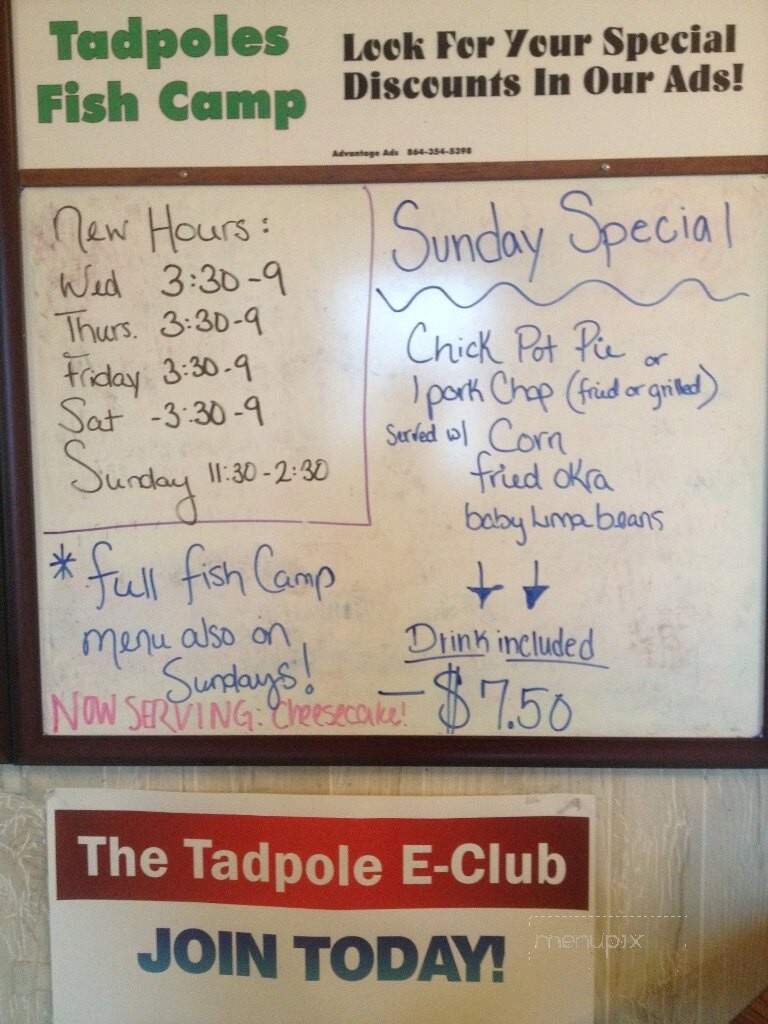 Tadpoles
Fish Camp
Look For Your Special
Discounts In Our Ads!
Advantage Ads 864-354-5398
New Hours:
Wed 3:30-9
Thurs. 3:30-9
Friday 3:30-9
Sat -3:30-9
Sunday 11:30-2:30
* full fish Camp
menu also on
Sundays!
NOW SERVING: Cheesecake!
Sunday Special
Chick Pot Pie or
1 pork Chop (fried or grilled)
Served w/ Corn
fried okra
baby lima beans
Drink included
- $7.50
The Tadpole E-Club
JOIN TODAY!
menupix